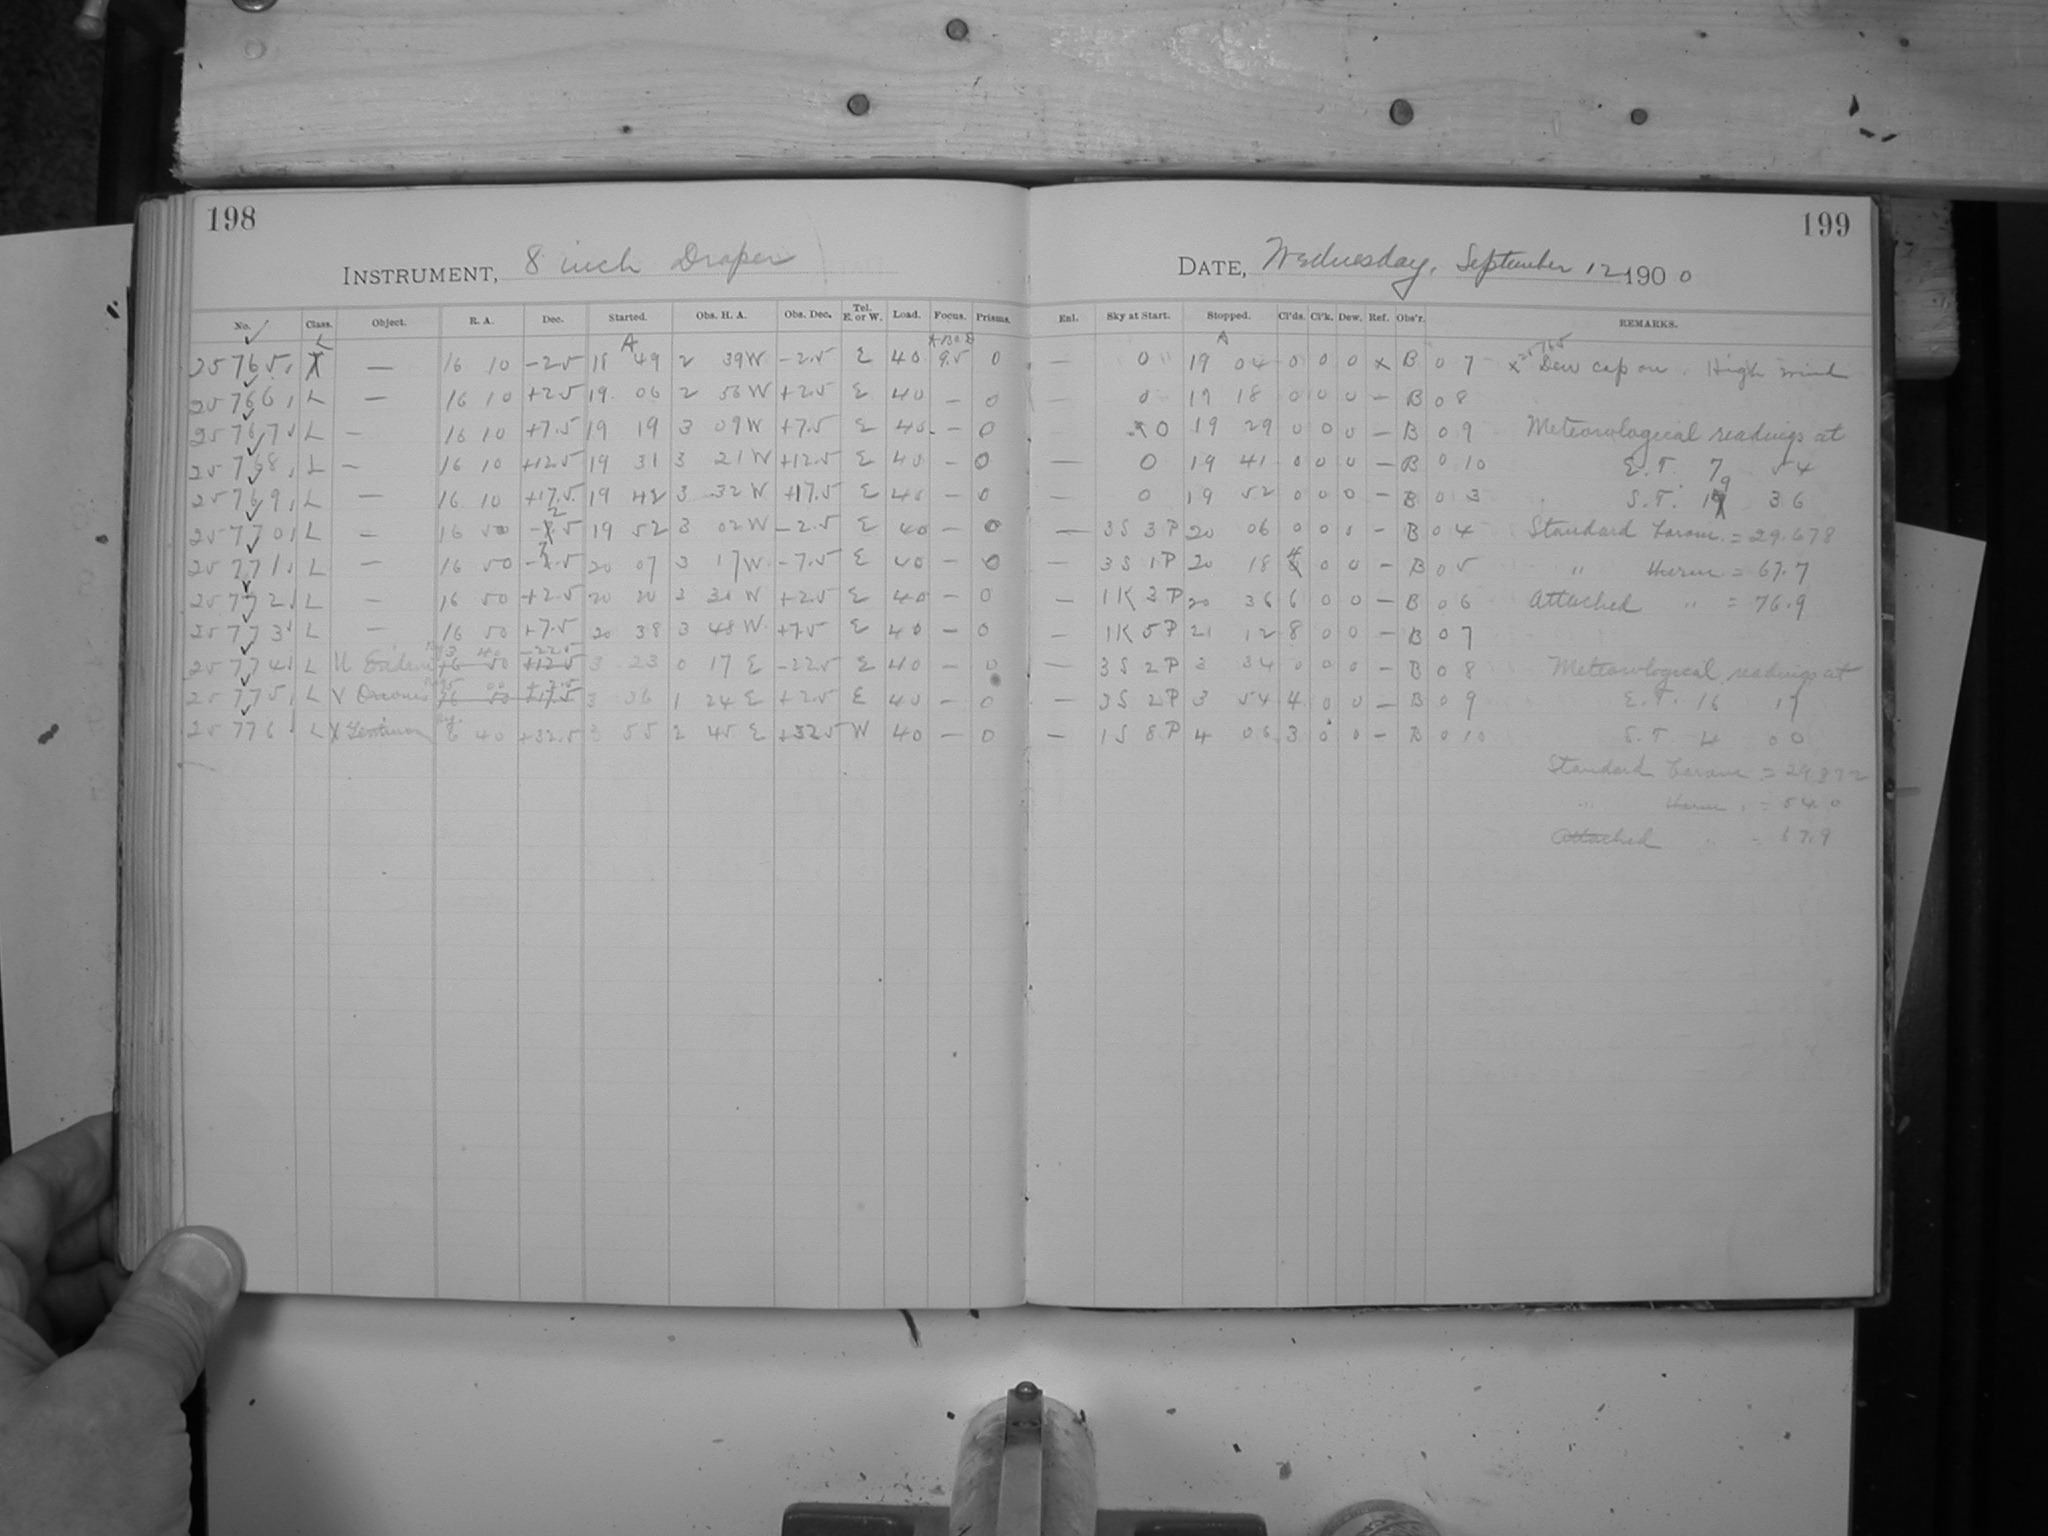 198
199
INSTRUMENT, 8 inch Draper
DATE, Wednesday, September 12 1900
No. Class. Object. R. A. Dec. Started. Obs. H. A. Obs. Dec. Tel. E. or W. Load. Focus. Prisms. Enl. Sky at Start. Stopped. Cl'ds. Cl'k. Dew. Ref. Obs'r. REMARKS.
25765 L — 16 10 -2.5 18 49 2 39W -2.5 E 40 9.5 0 — 0 19 04 0 0 0 x B 0 7 x Dew cap on. High wind
25766 L — 16 10 +2.5 19 06 2 56W +2.5 E 40 — 0 — 0 19 18 0 0 0 — B 0 8
25767 L — 16 10 +7.5 19 19 3 09W +7.5 E 40 — 0 0 19 29 0 0 0 — B 0 9 Meteorological readings at
25768 L — 16 10 +12.5 19 31 3 21W +12.5 E 40 — 0 — 0 19 41 0 0 0 — B 0 10 E.T. 7 54
25769 L — 16 10 +17.5 19 42 3 32W +17.5 E 40 — 0 — 0 19 52 0 0 0 — B 0 3 S.T. 19 36
25770 L — 16 50 -2.5 19 52 3 02W -2.5 E 40 — 0 — 3S 3P 20 06 0 0 0 — B 0 4 Standard barom. = 29.678
25771 L — 16 50 -7.5 20 07 3 17W -7.5 E 40 — 0 — 3S 1P 20 18 4 0 0 — B 0 5 " therm = 67.7
25772 L — 16 50 +2.5 20 20 3 30W +2.5 E 40 — 0 — 1K 3P 20 36 6 0 0 — B 0 6 Attached " = 76.9
25773 L — 16 50 +7.5 20 38 3 48W +7.5 E 40 — 0 — 1K 5P 21 12 8 0 0 — B 0 7
25774 L U 3 40 -22.5 3 23 0 17 E -22.5 E 40 — 0 — 3S 2P 3 34 0 0 0 — B 0 8 Meteorological readings at
25775 L V Orionis +2.5 3 36 1 24 E +2.5 E 40 — 0 — 3S 2P 3 54 4 0 0 — B 0 9 E.T. 16 17
25776 L X 6 40 +32.5 3 55 2 45 E +32.5 W 40 — 0 — 1S 8P 4 06 3 0 0 — B 0 10 S.T. 4 00
Standard barom =
" therm. = 54.0
Attached " = 67.9